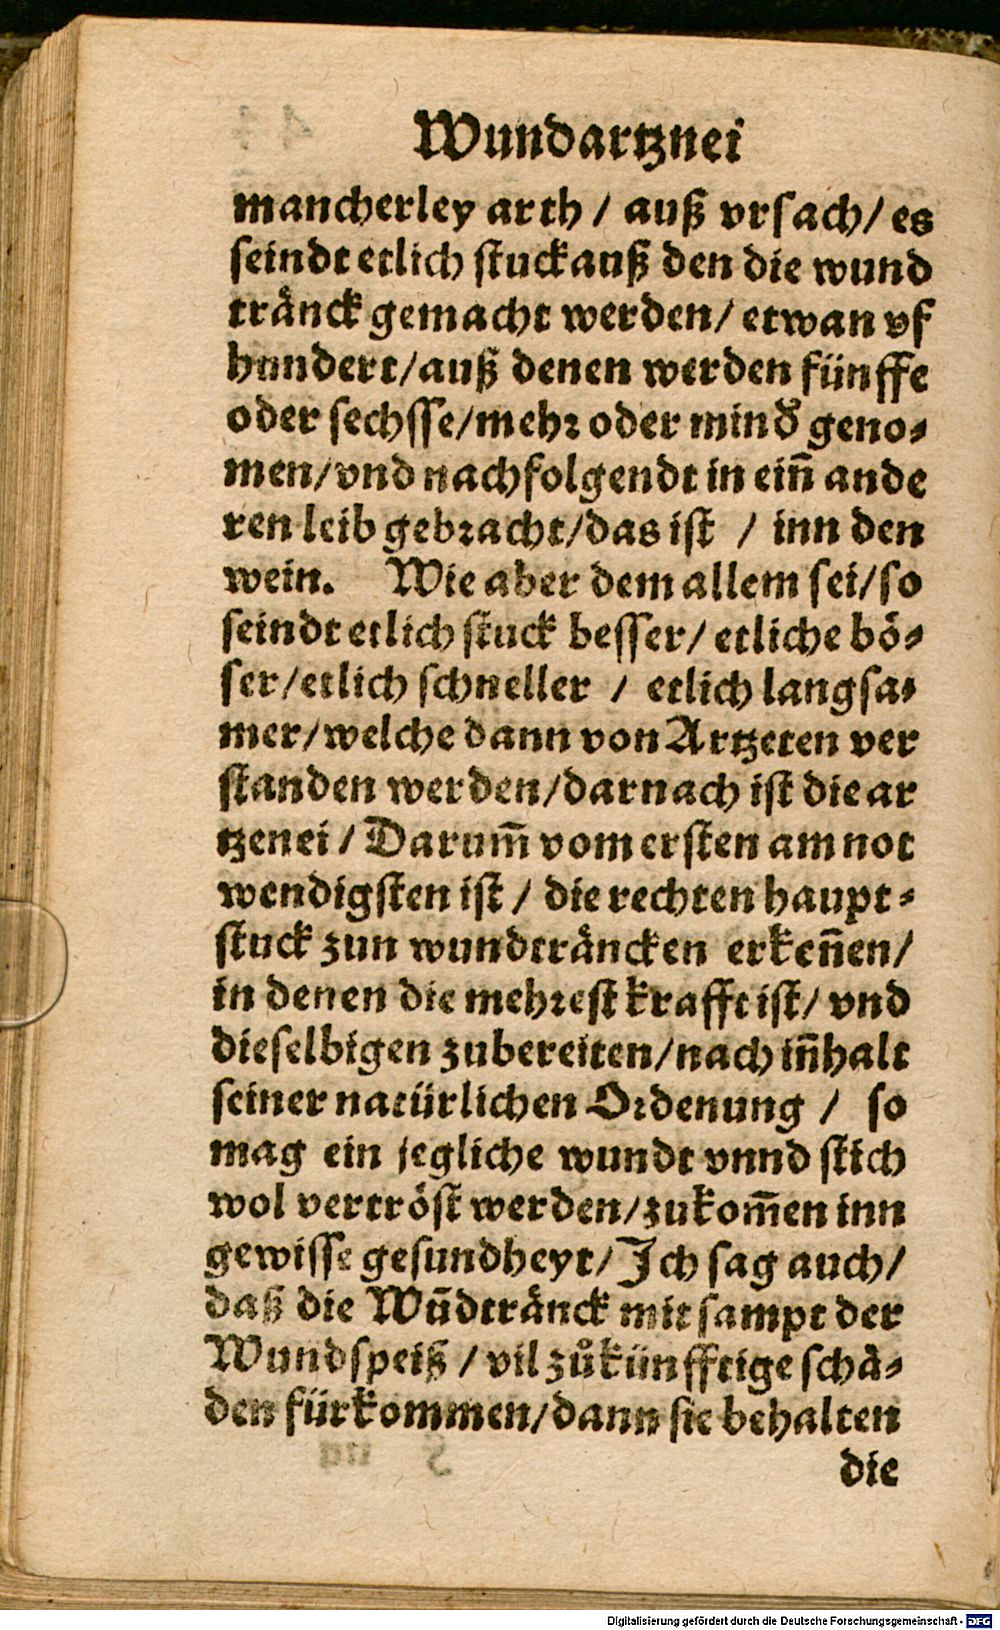 Wundartznei
mancherley arth / auß vrsach / es
seindt etlich stuck auß den die wund
tränck gemacht werden / etwan vf
hundert / auß denen werden fünffe
oder sechsse / mehr oder mind̄ geno⸗
men / vnd nachfolgendt in ein̄ ande
ren leib gebracht / das ist / inn den
wein. Wie aber dem allem sei / so
seindt etlich stuck besser / etliche bö⸗
ser / etlich schneller / etlich langsa⸗
mer / welche dann von Artzeten ver
standen werden / darnach ist die ar
tzenei / Darum̄ vom ersten am not
wendigsten ist / die rechten haupt⸗
stuck zun wundträncken erken̄en /
in denen die mehrest krafft ist / vnd
dieselbigen zubereiten / nach in̄halt
seiner natürlichen Ordenung / so
mag ein jegliche wundt vnnd stich
wol vertröst werden / zukom̄en inn
gewisse gesundheyt / Ich sag auch /
daß die Wūdtränck mit sampt der
Wundspeiß / vil zůkünfftige schä⸗
den fürkommen / dann sie behalten
die
Digitalisierung gefördert durch die Deutsche Forschungsgemeinschaft - DFG